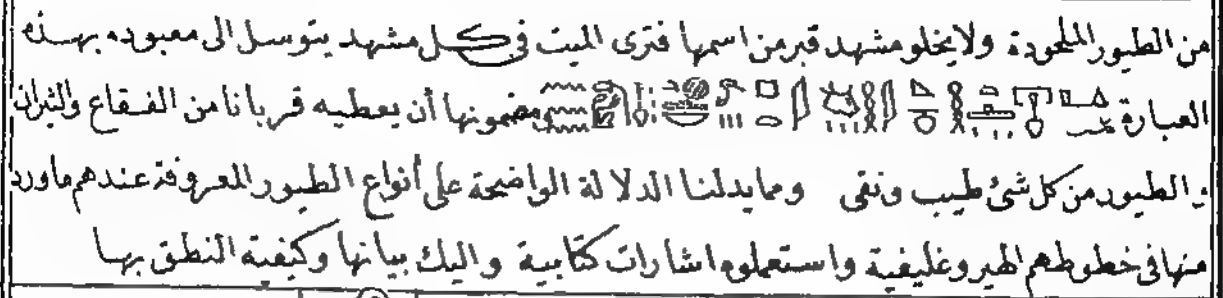 من الطيور الملحودة ولايخلو مشهد قبر من اسمها فترى الميت في كل مشهد يتوسل الى معبوده بهذه
العبارة ومضمونها أن يعطيه قربانا من الفقاع والثيران
والطيور من كل شئ طيب ونقى ومما يدلنا الدلالة الواضحة على أنواع الطيور المعروفة عندهم ماورد
منها فى خطوطهم الهيروغليفية واستعملوه اشارات كتابية واليك بيانها وكيفية النطق بها